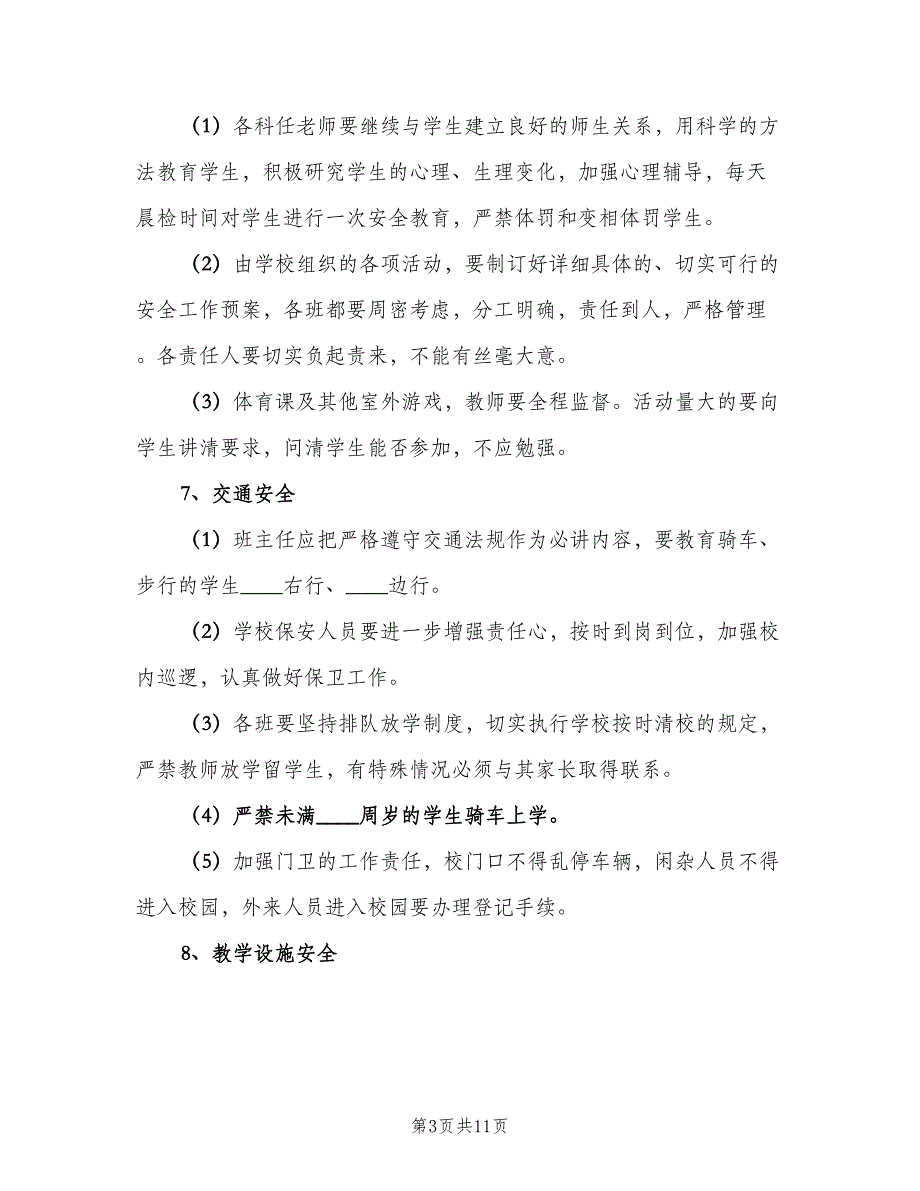 （1）各科任老师要继续与学生建立良好的师生关系，用科学的方
法教育学生，积极研究学生的心理、生理变化，加强心理辅导，每天
晨检时间对学生进行一次安全教育，严禁体罚和变相体罚学生。
（2）由学校组织的各项活动，要制订好详细具体的、切实可行的
安全工作预案，各班都要周密考虑，分工明确，责任到人，严格管理
。各责任人要切实负起责来，不能有丝毫大意。
（3）体育课及其他室外游戏，教师要全程监督。活动量大的要向
学生讲清要求，问清学生能否参加，不应勉强。
7、交通安全
（1）班主任应把严格遵守交通法规作为必讲内容，要教育骑车、
步行的学生____右行、____边行。
（2）学校保安人员要进一步增强责任心，按时到岗到位，加强校
内巡逻，认真做好保卫工作。
（3）各班要坚持排队放学制度，切实执行学校按时清校的规定，
严禁教师放学留学生，有特殊情况必须与其家长取得联系。
（4）严禁未满____周岁的学生骑车上学。
（5）加强门卫的工作责任，校门口不得乱停车辆，闲杂人员不得
进入校园，外来人员进入校园要办理登记手续。
8、教学设施安全
第3页共11页